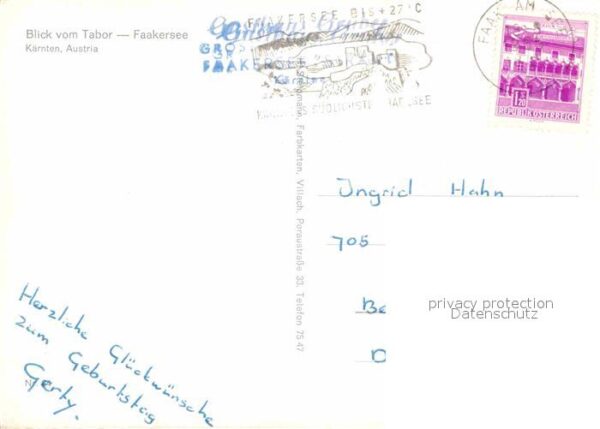 Blick vom Tabor — Faakersee
Kärnten, Austria
FAAKERSEE BIS +27°C
FAAK AM
1.20
REPUBLIK ÖSTERREICH
Farbkarten, Villach, Peraustraße 33, Telefon 7547
Ingrid Hahn
705
Be
D
privacy protection
Datenschutz
Herzliche Glückwünsche
zum Geburtstag
Gerty.